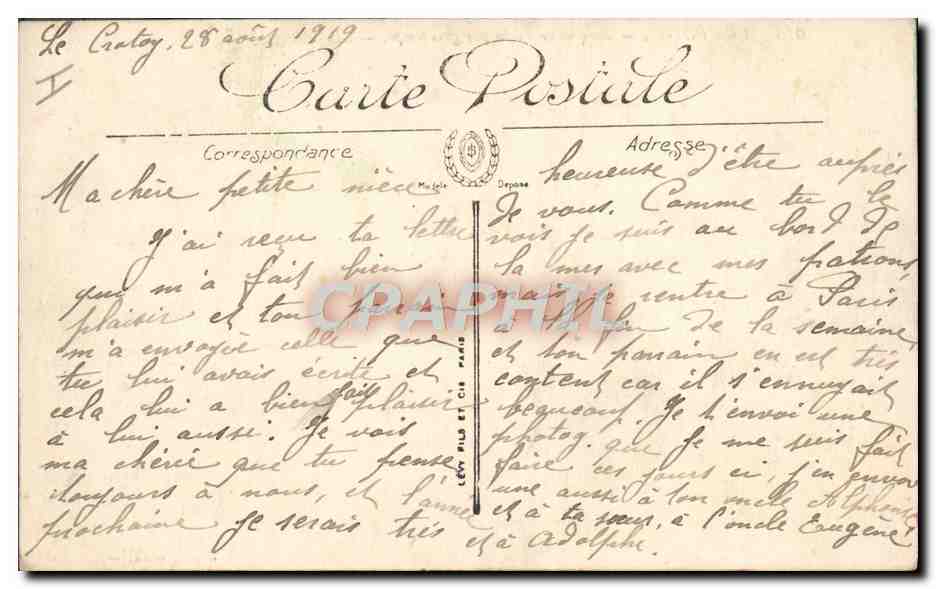 Le Crotoy, 28 août 1919
I
Carte Postale
Correspondance
Adresse
Modèle Déposé
Ma chère petite nièce
J'ai reçu ta lettre
qui m'a fait bien
plaisir et ton parrain
m'a envoyée celle que
tu lui avais écrite et
cela lui a bien fait plaisir
à lui aussi. Je vois
ma chérie que tu pense
toujours à nous, et l'année
prochaine je serais très
heureuse d'être auprès
de vous. Comme tu le
vois je suis au bord de
la mer avec mes patrons,
mais je rentre à Paris
à la fin de la semaine
et ton parrain en est très
content car il s'ennuyait
beaucoup. Je t'envoi une
photog. que je me suis fait
faire ces jours ci, j'en envoi
une aussi à ton oncle Alphonse
et à ta sœur, à l'oncle Eugène
et à Adolphe.
LÉVY FILS ET CIE PARIS
CPAPHIL